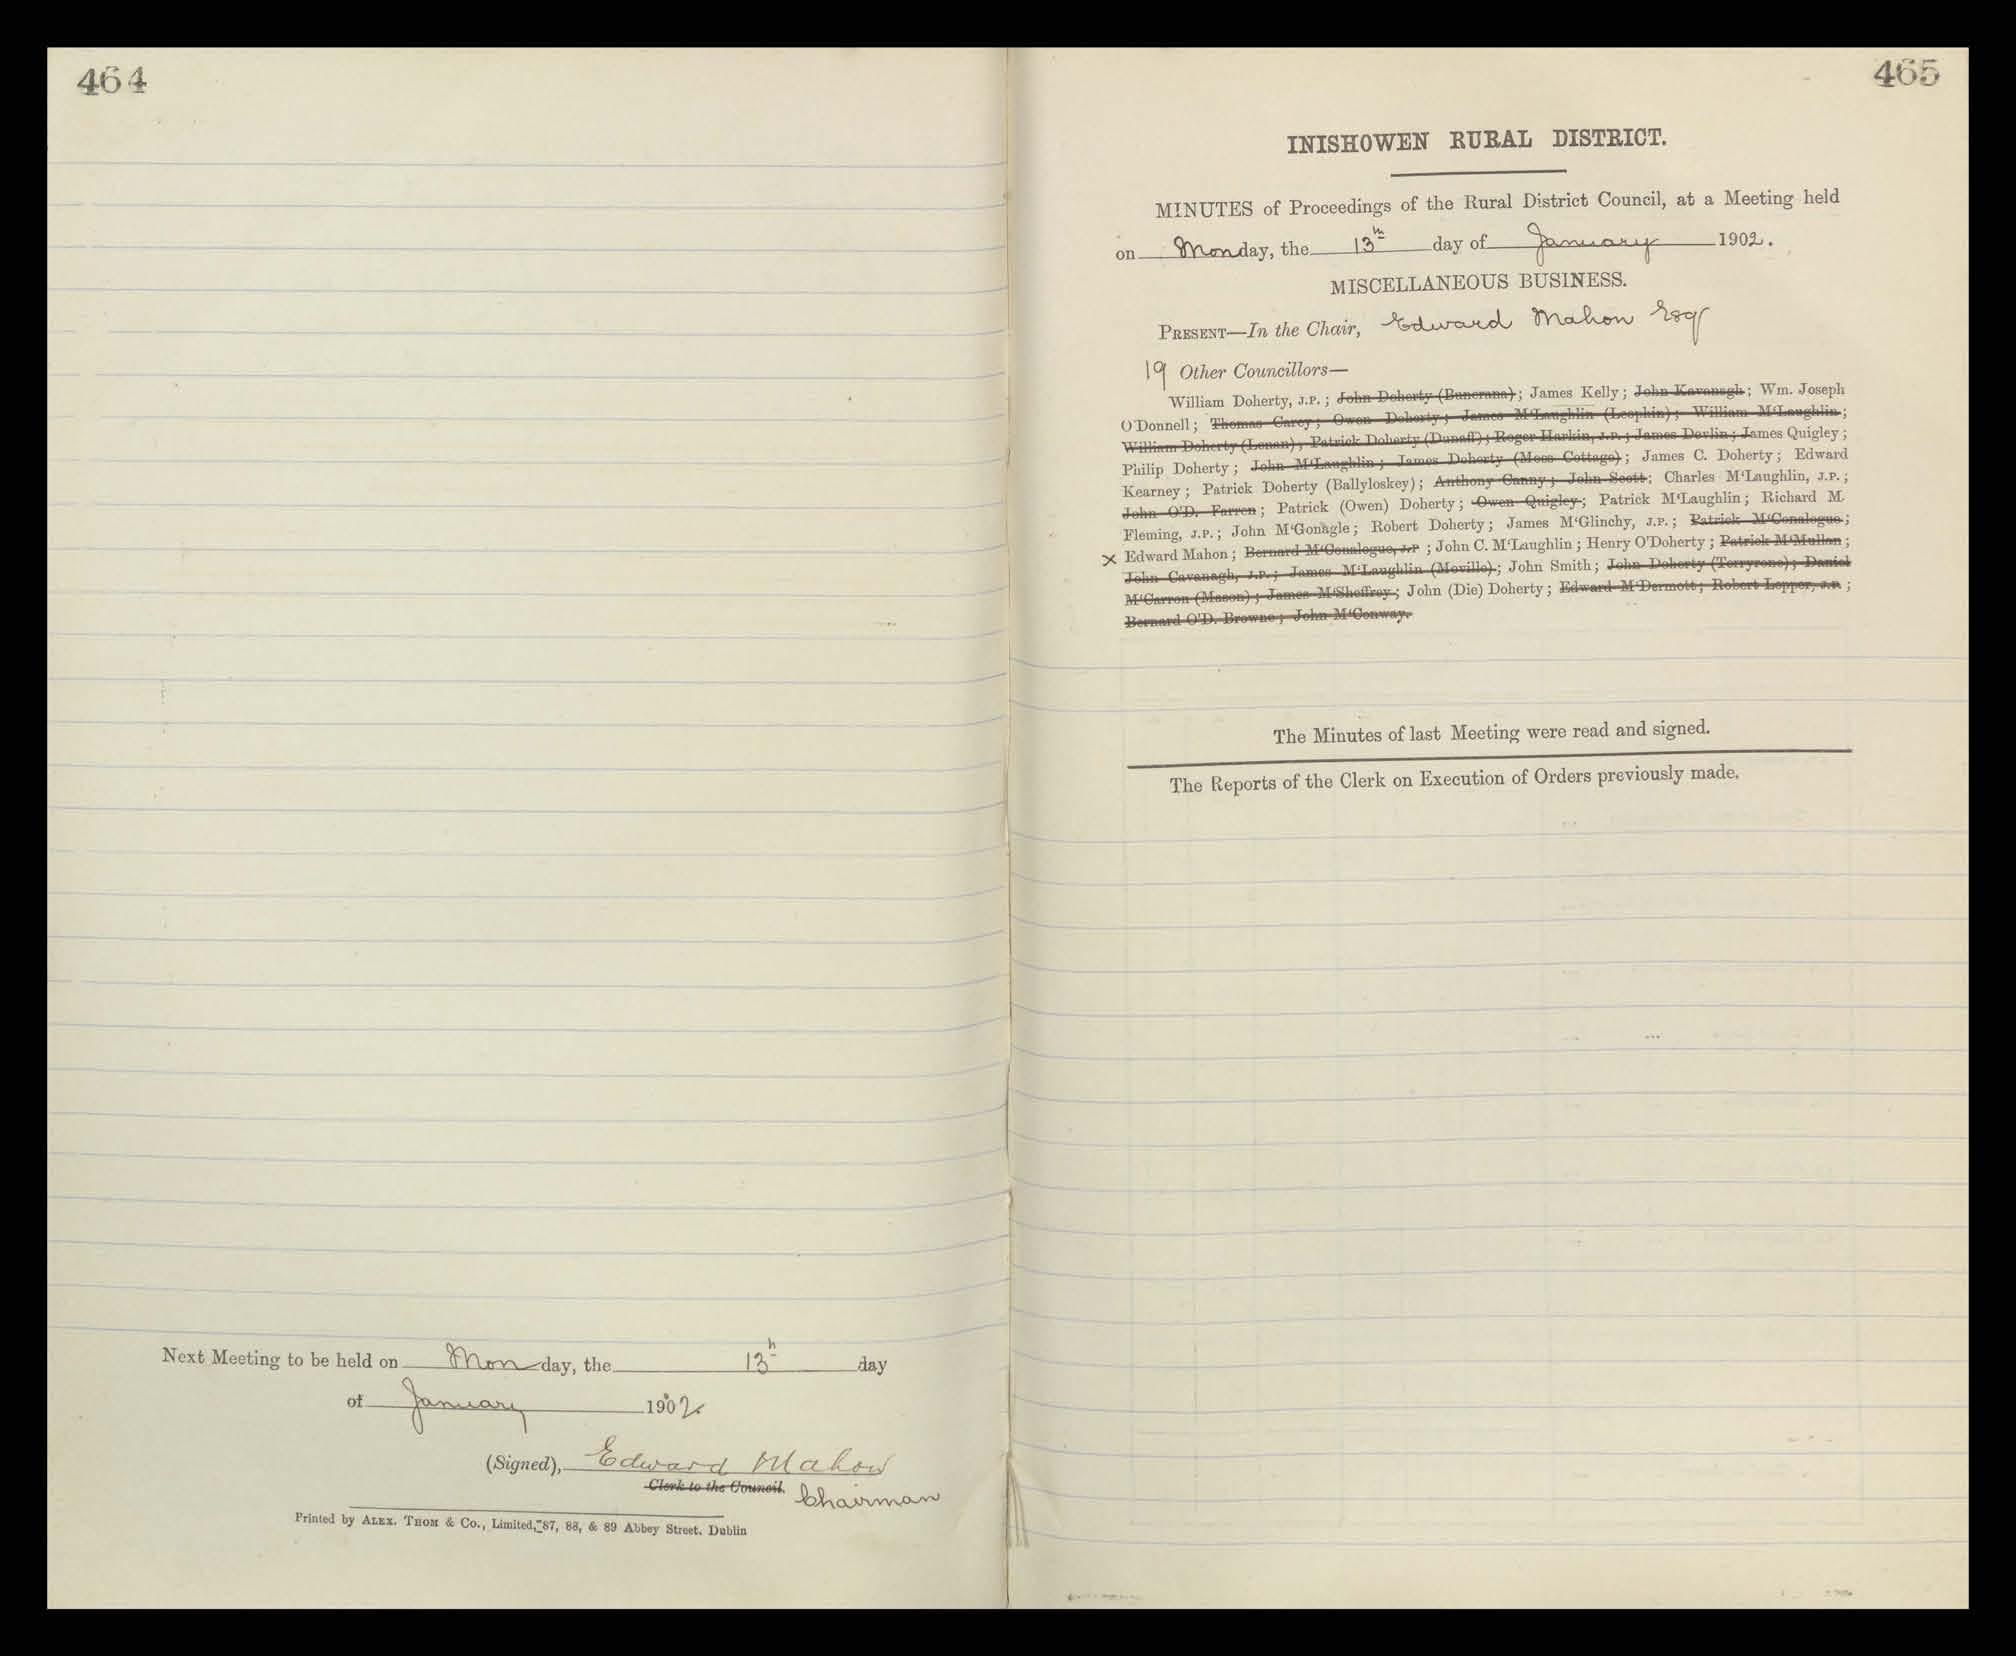 464
Next Meeting to be held on Monday, the 13th day
of January 1902.
(Signed), Edward Mahon
Clerk to the Council. Chairman
Printed by ALEX. THOM & Co., Limited, 87, 88, & 89 Abbey Street. Dublin
465
INISHOWEN RURAL DISTRICT.
MINUTES of Proceedings of the Rural District Council, at a Meeting held
on Monday, the 13th day of January 1902.
MISCELLANEOUS BUSINESS.
PRESENT—In the Chair, Edward Mahon Esqr
19 Other Councillors—
William Doherty, J.P.; John Doherty (Buncrana); James Kelly; John Kavanagh; Wm. Joseph
O'Donnell; Thomas Carey; Owen Doherty; James M'Laughlin (Leophin); William M'Laughlin;
William Doherty (Lenan); Patrick Doherty (Dunaff); Roger Harkin, J.P.; James Devlin; James Quigley;
Philip Doherty; John M'Laughlin; James Doherty (Moss Cottage); James C. Doherty; Edward
Kearney; Patrick Doherty (Ballyloskey); Anthony Canny; John Scott; Charles M'Laughlin, J.P.;
John O'D. Farren; Patrick (Owen) Doherty; Owen Quigley; Patrick M'Laughlin; Richard M.
Fleming, J.P.; John M'Gonagle; Robert Doherty; James M'Glinchy, J.P.; Patrick M'Conalogue;
x Edward Mahon; Bernard M'Conalogue, J.P; John C. M'Laughlin; Henry O'Doherty; Patrick M'Mullan;
John Cavanagh, J.P.; James M'Laughlin (Moville); John Smith; John Doherty (Terryrone); Daniel
M'Carron (Mason); James M'Sheffrey; John (Die) Doherty; Edward M'Dermott; Robert Lepper, J.P.;
Bernard O'D. Browne; John M'Conway.
The Minutes of last Meeting were read and signed.
The Reports of the Clerk on Execution of Orders previously made.